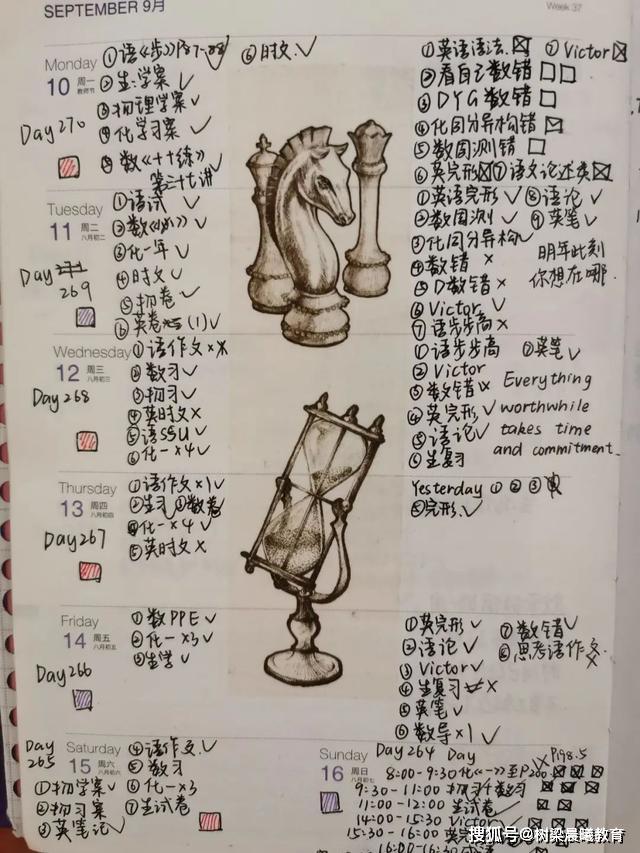 SEPTEMBER 9月
Week 37
Monday
10 周一
教师节
Day 270
①语《步》P87-88 ✓
②生学案 ✓
③物理学案 ✓
④化学习案 ✓
⑤数《十十练》✓
第三十七讲
⑥时文 ✓
①英语语法 ☒ ⑦Victor ☒
②看自己数错 □□
③DYG数错 □
④化同分异构错 ☒
⑤数周测错 □
⑥英完形 ☒ ⑦语文论述类 ☒
Tuesday
11 周二
八月初二
Day
269
①语试 ✓
②数 ✓
③化一年 ✓
④时文 ✓
⑤物卷 ✓
⑥英卷 (1) ✓
①英语完形 ✓ ⑧语论 ✓
②数周测 ✓ ⑨英笔 ✓
③化同分异构 ✓
④数错 ×
⑤D数错 ×
⑥Victor ✓
⑦语步步高 ×
明年此刻
你想在哪
Wednesday
12 周三
八月初三
Day 268
①语作文 ××
②数习 ✓
③物习 ✓
④英时文 ×
⑤语SSU ✓
⑥化一×4 ✓
①语步步高 ⑦英笔 ✓
②Victor
③数错 ×
④英完形 ✓
⑤语论 ✓
⑥生复习
Everything
worthwhile
takes time
and commitment.
Thursday
13 周四
八月初四
Day 267
①语作文×1 ✓
②生习 ③数卷
④化一×4 ✓
⑤英时文 ×
Yesterday ①②③
⑤完形 ✓
Friday
14 周五
八月初五
Day 266
①数PPE ✓
②化一×3 ✓
③生学 ✓
①英完形 ✓ ⑦数错 ✓
②语论 ✓ ⑧思考语作文
③Victor ✓
④生复习 ×
⑤英笔 ✓
⑥数导×1 ✓
Day
265
Saturday
15 周六
八月初六
①物学案 ✓
②物习案 ✓
③英笔记 ✓
④语作文 ✓
⑤数习
⑥化一×3 ✓
⑦生试卷 ✓
Sunday
16 周日
八月初七
Day 264 Day
P198.5
8:00-9:30 化《一》至P200 ☒ ☒ ☒
9:30-11:00 物习+数习 ☒ ☒ ☒
11:00-12:00 生试卷
14:00-15:30 Victor
15:30-16:00 英
16:00-16:30
搜狐号@树梁晨曦教育